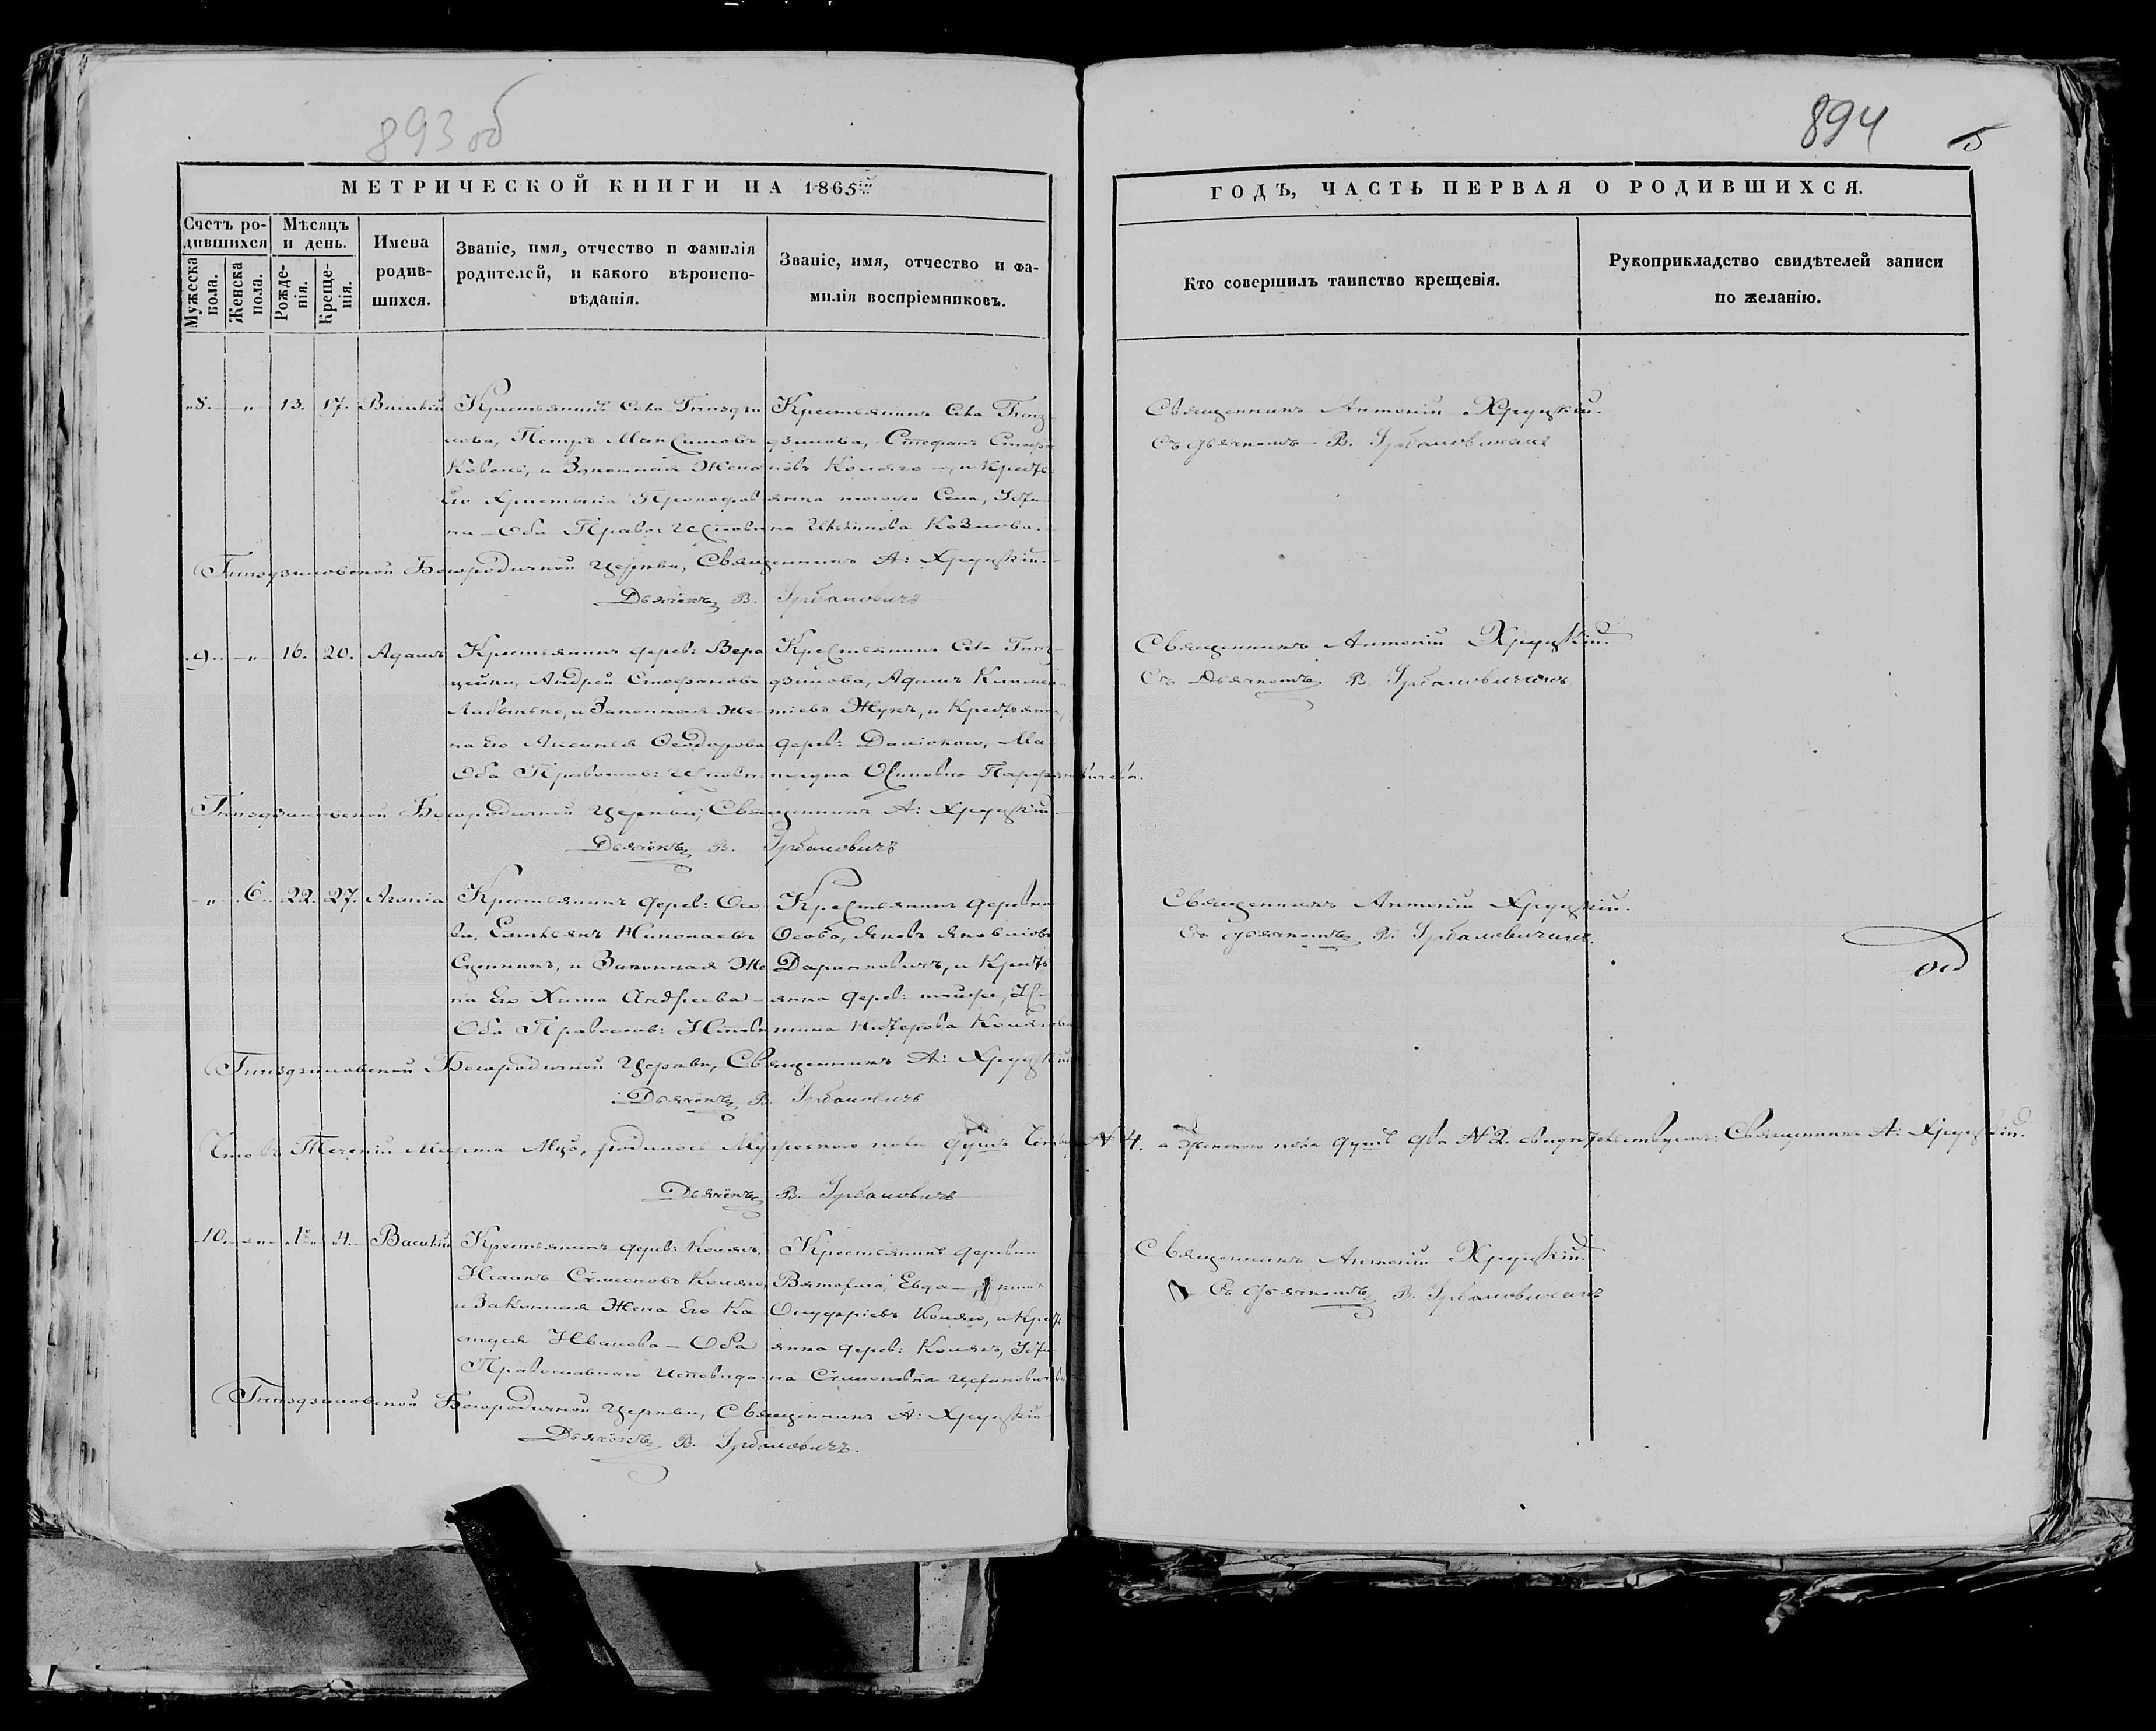 893 об
894
5
МЕТРИЧЕСКОЙ КНИГИ НА 1865й
ГОДЪ, ЧАСТЬ ПЕРВАЯ О РОДИВШИХСЯ.
Счетъ ро-
дившихся
Мѣсяцъ
и день.
Мужеска
пола.
Женска
пола.
Рожде-
нія.
Креще-
нія.
Имена
родив-
шихся.
Званіе, имя, отчество и фамилія
родителей, и какого вѣроиспо-
вѣданія.
Званіе, имя, отчество и фа-
милія воспріемниковъ.
Кто совершилъ таинство крещенія.
Рукоприкладство свидѣтелей записи
по желанію.
8. 13. 17. Василій
Крестьянинъ Села Гнѣзди
лова, Петръ Максимовъ
и Законная Жена
Его Христина Прокофьев
на Оба Правос: Исповѣ
Крестьянинъ Села Гнѣз
дзилова, Стефанъ Стефа
новъ Коляго и Кресть
янка тогоже Села, Юсти
на Козлова.
Священникъ Антоній Хруцкій.
Съ дьячкомъ В. Урбановичемъ
Гнѣздзиловской Богородичной Церкви, Священникъ А: Хруцкій
Дьячекъ В. Урбановичъ
9. 16. 20. Адамъ
Крестьянинъ дерев: Вере
цейки, Андрей Стефановъ
и Законная Же
на Его Ѳеодорова
Оба Православ: Исповѣ
Крестьянинъ Села Гнѣз
дзилова, Адамъ Климен
тіевъ Жукъ, и Крестьянка
дерев:
Осиповна
Священникъ Антоній Хруцкій.
Съ Дьячкомъ В. Урбановичемъ
Гнѣздзиловской Богородичной Церкви, Священникъ А: Хруцкій
Дьячекъ В. Урбановичъ
6. 22. 27. Агапія
Крестьянинъ дерев: Осо
ва, Емельянъ Николаевъ
и Законная Же
на Его Хима Андреева
Оба Православ: Исповѣ
Крестьянинъ деревни
Особа, Яковъ Яковлевъ
и Кресть
янка дерев: тойже, Ю
стина Несторова Колягова
Священникъ Антоній Хруцкій.
Съ дьячкомъ В. Урбановичемъ.
Гнѣздзиловской Богородичной Церкви, Священникъ А: Хруцкій
Дьячекъ В. Урбановичъ
Что въ Теченіи Марта Мца, родилось Мужескаго пола душъ Четыре № 4. а Женскаго пола душъ двѣ № 2. свидѣтельствуемъ: Священникъ А: Хруцкій.
Дьячекъ В. Урбановичъ
10. 1. 4. Василій
Крестьянинъ дерев: Коляги,
Исаакъ Сѵмеоновъ Коляго,
и Законная Жена Его Ка
Иванова Оба
Православнаго Исповѣда
Крестьянинъ деревни
Евдо кимъ
Онуфріевъ Коляго, и Крест
янка дерев: Коляги, Юсти
на Сѵмеоновна
Священникъ Антоній Хруцкій
Съ дьячкомъ В. Урбановичемъ
Гнѣздзиловской Богородичной Церкви, Священникъ А: Хруцкій
Дьячекъ В. Урбановичъ.